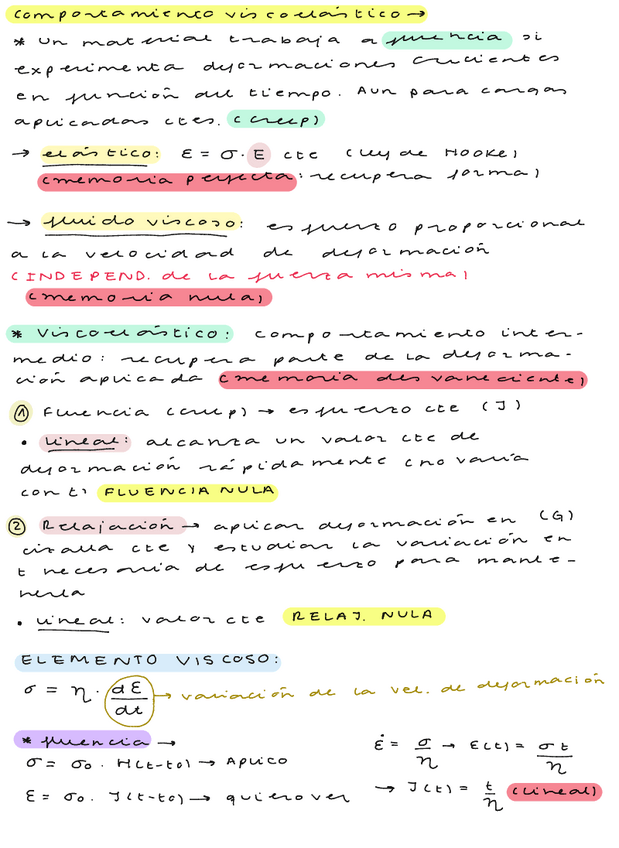 comportamiento viscoelástico →
* un material trabaja a fluencia si
experimenta deformaciones crecientes
en función del tiempo. Aun para cargas
aplicadas ctes. (creep)
→ elástico: ε = σ · E cte (ley de HOOKE)
(memoria perfecta: recupera forma)
→ fluido viscoso: esfuerzo proporcional
a la velocidad de deformación
(INDEPEND. de la fuerza misma)
(memoria nula)
* Viscoelástico: comportamiento inter-
medio: recupera parte de la deforma-
ción aplicada (memoria desvaneciente)
① Fluencia (creep) → esfuerzo cte (J)
• lineal: alcanza un valor cte de
deformación rápidamente (no varía
con t) FLUENCIA NULA
② Relajación → aplicar deformación en (G)
cizalla cte y estudiar la variación en
t necesaria de esfuerzo para mante-
nerla
• lineal: valor cte RELAJ. NULA
ELEMENTO VISCOSO:
σ = η · dε/dt → variación de la vel. de deformación
* fluencia →
σ = σ0 · H(t-t0) → Aplico
ε = σ0 · J(t-t0) → quiero ver
ε̇ = σ/η → ε(t) = σt/η
→ J(t) = t/η (lineal)